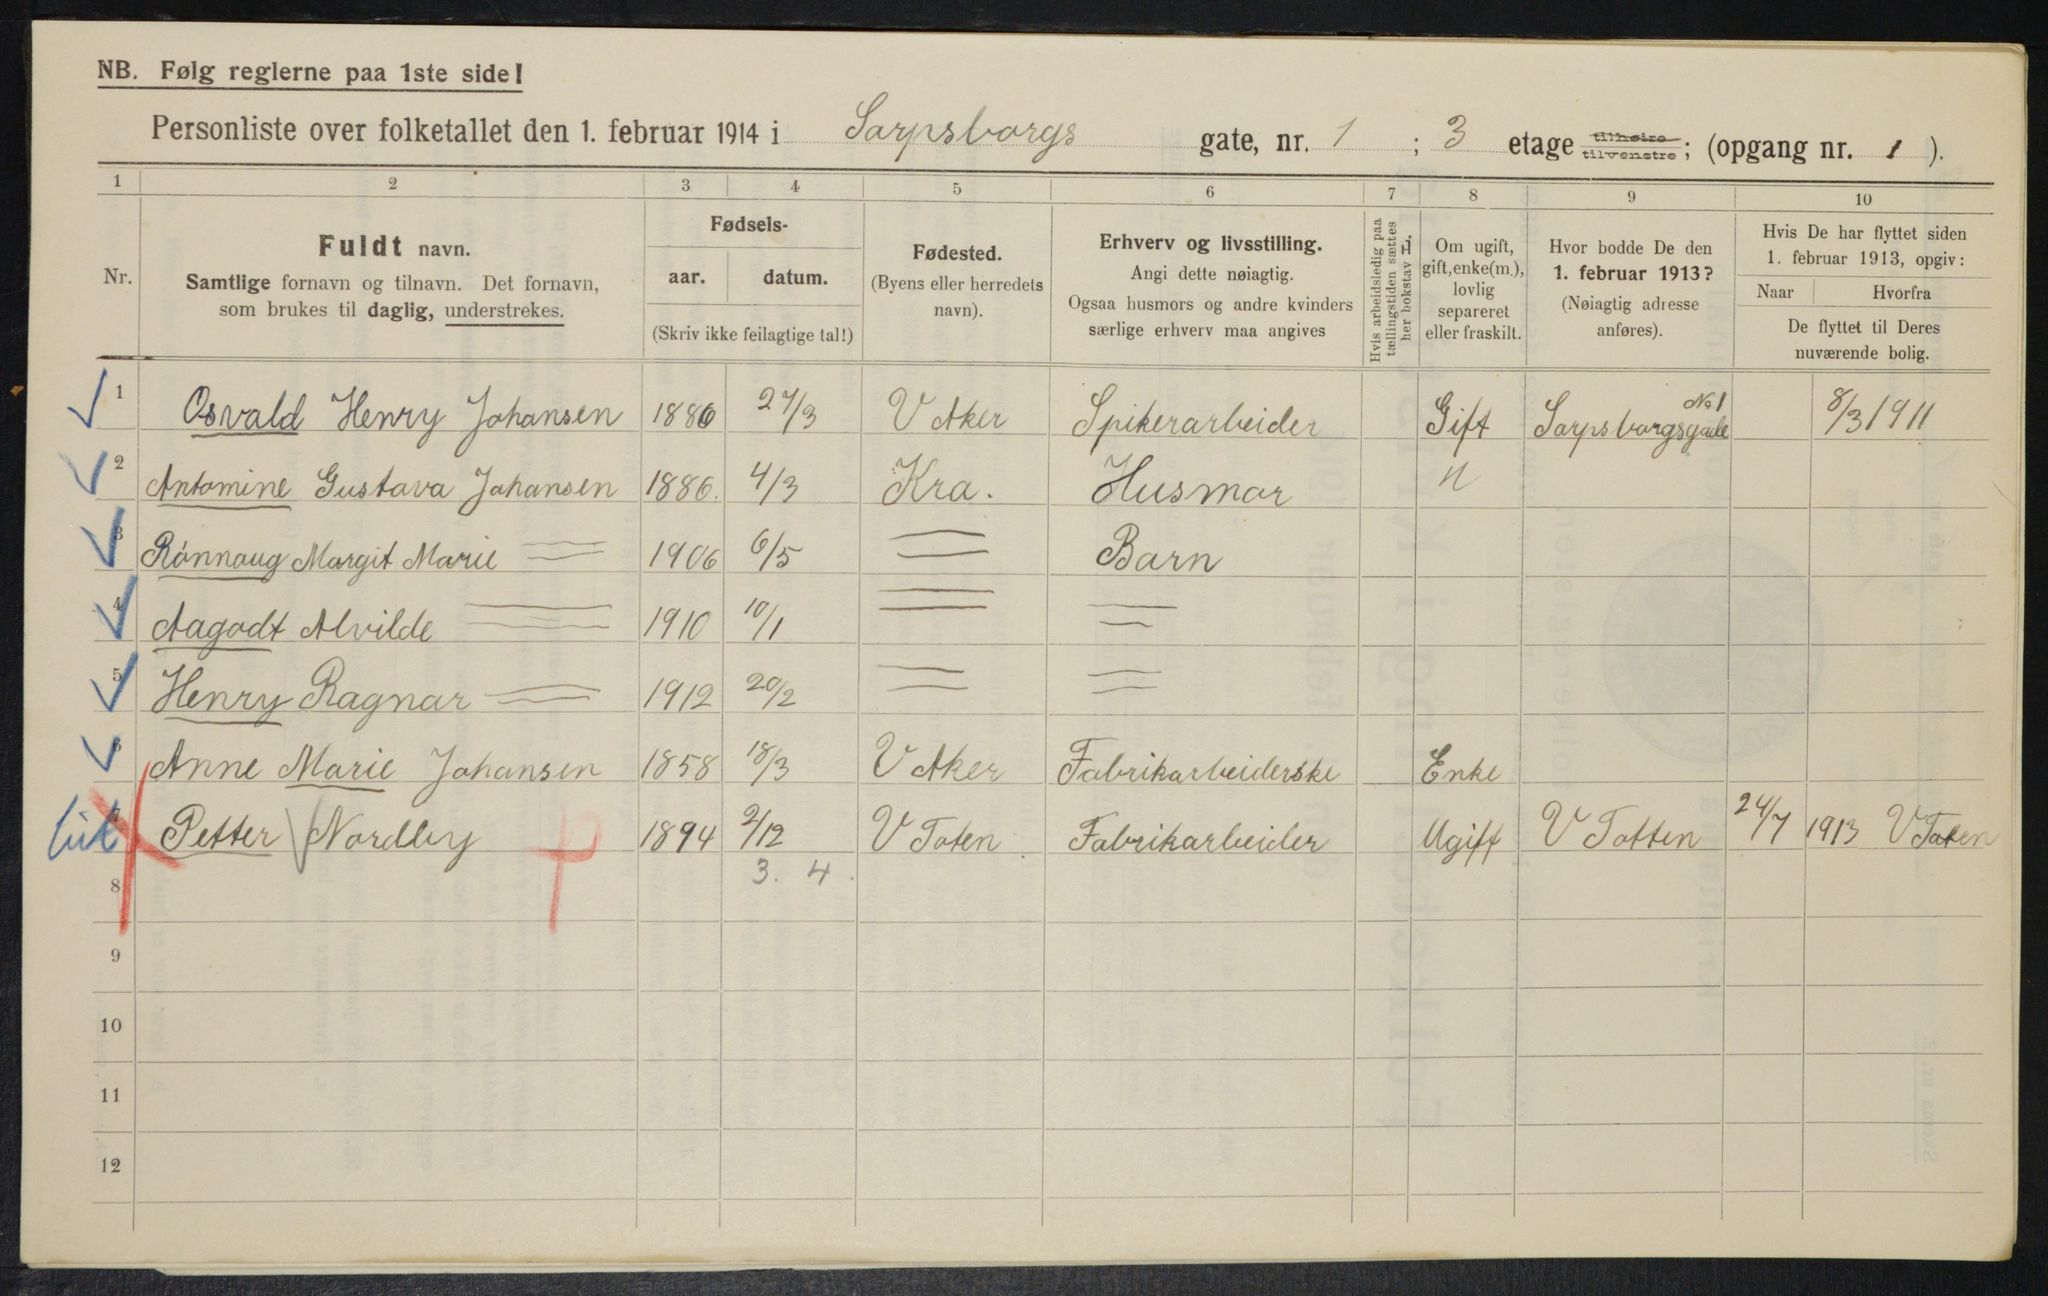 NB. Følg reglerne paa 1ste side!
Personliste over folketallet den 1. februar 1914 i Sarpsborgs gate, nr. 1 ; 3 etage tilhøire tilvenstre; (opgang nr. 1 ).
1 2 3 4 5 6 7 8 9 10
Nr.
Fuldt navn.
Samtlige fornavn og tilnavn. Det fornavn,
som brukes til daglig, understrekes.
Fødsels-
aar. datum.
(Skriv ikke feilagtige tal!)
Fødested.
(Byens eller herredets
navn).
Erhverv og livsstilling.
Angi dette nøiagtig.
Ogsaa husmors og andre kvinders
særlige erhverv maa angives
Hvis arbeidsledig paa
tællingstiden sættes
her bokstav H.
Om ugift,
gift, enke(m.),
lovlig
separeret
eller fraskilt.
Hvor bodde De den
1. februar 1913?
(Nøiagtig adresse
anføres).
Hvis De har flyttet siden
1. februar 1913, opgiv:
Naar Hvorfra
De flyttet til Deres
nuværende bolig.
1 Osvald Henry Johansen 1886 27/3 V Aker Spikerarbeider Gift Sarpsborgsgade No 1 8/3 1911
2 Antomine Gustava Johansen 1886. 4/3 Kra. Husmor "
3 Rónnaug Margit Marie 1906 6/5 Barn
4 Aagodt Alvilde 1910 10/1
5 Henry Ragnar 1912 20/2
6 Anne Marie Johansen 1858 18/3 V Aker Fabrikarbeiderske Enke
7 Petter Nordby 1894 2/12 V Toten Fabrikarbeider Ugift V Totten 24/7 1913 V Toten
8 3. 4.
9
10
11
12